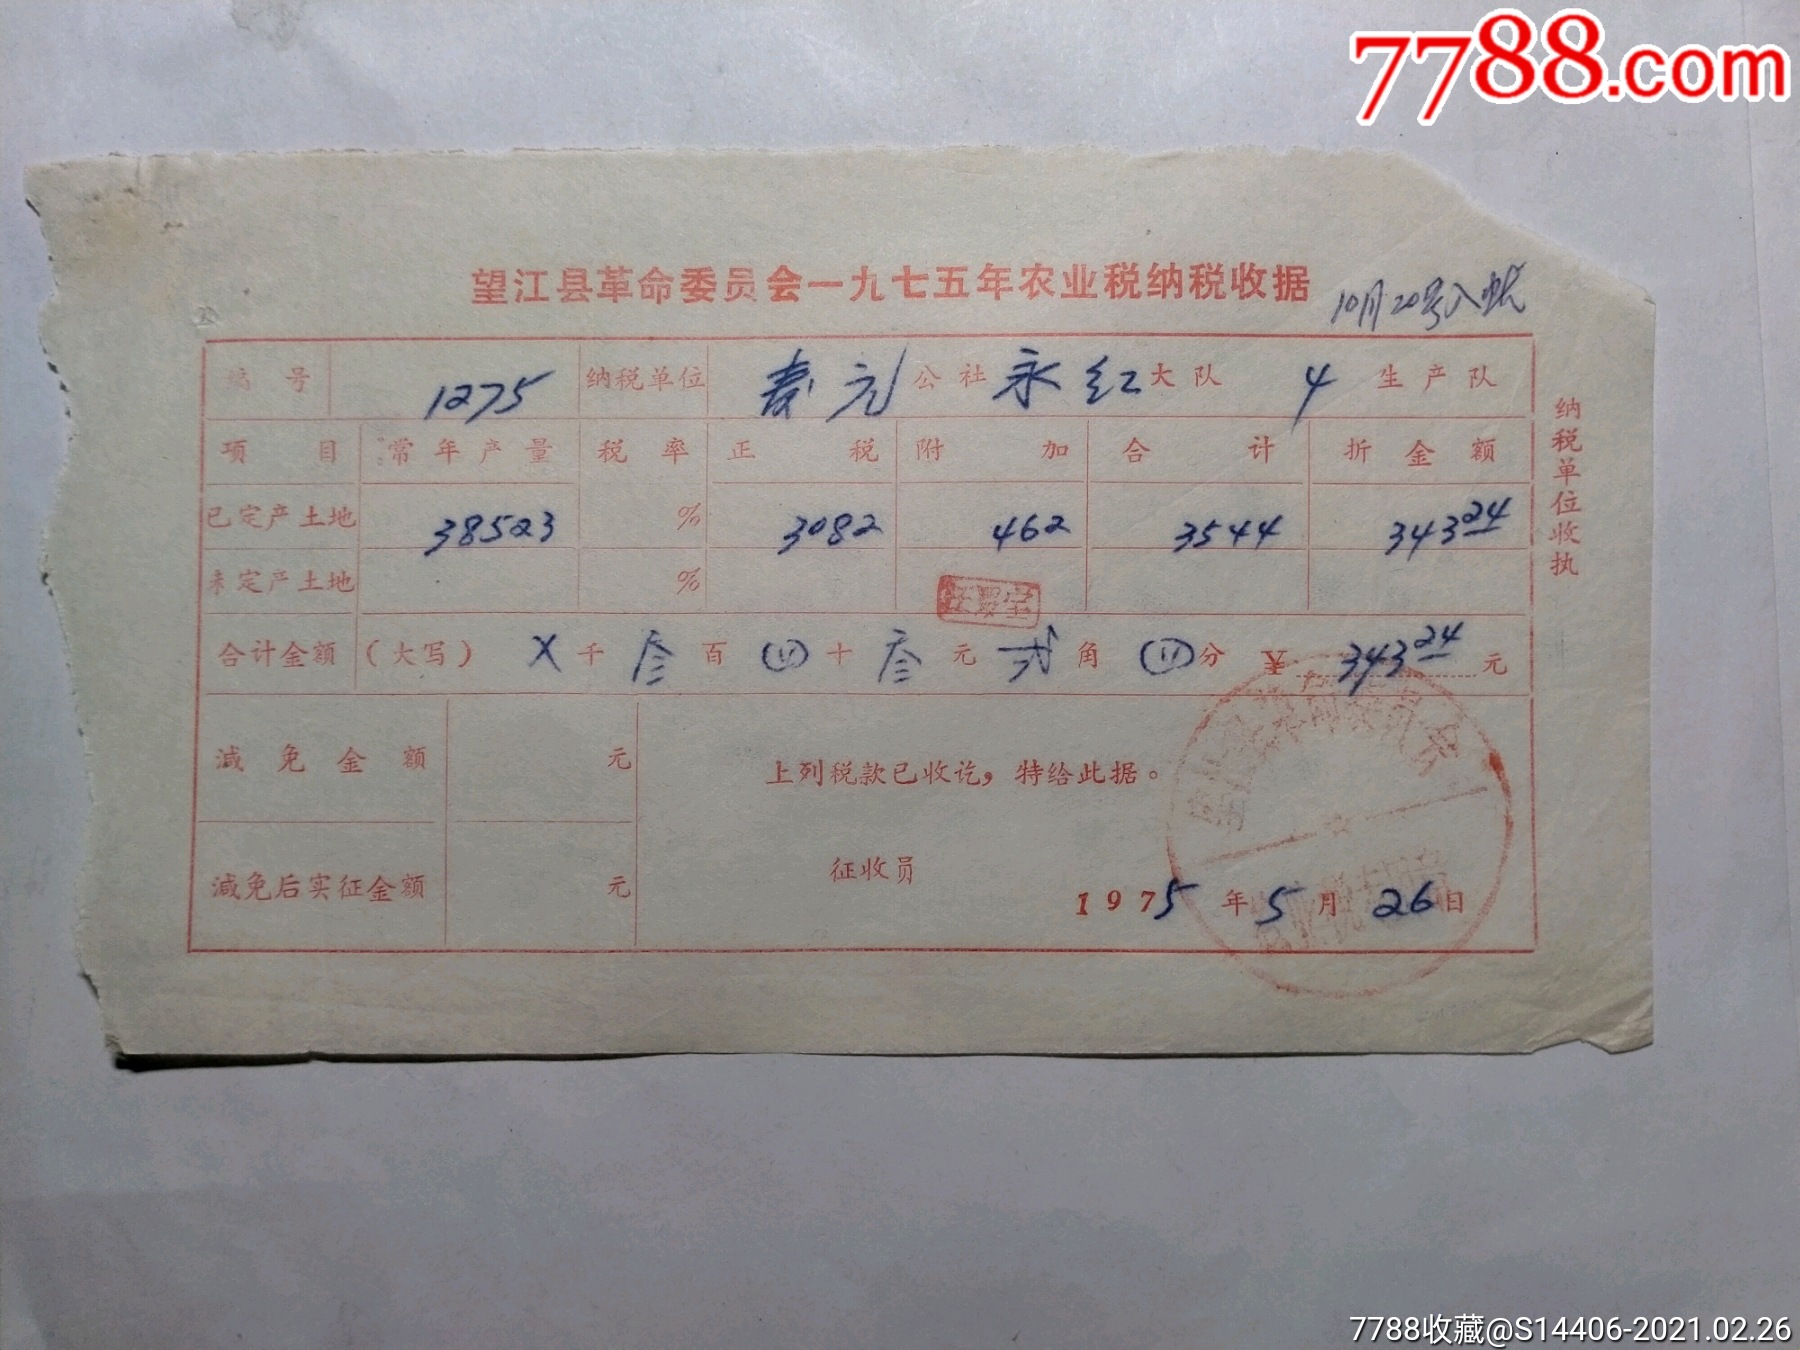 7788.com
望江县革命委员会一九七五年农业税纳税收据
10月20号入帐
编号 1275 纳税单位 寿元 公社 永红 大队 4 生产队
项目 常年产量 税率 正税 附加 合计 折金额
已定产土地 38523 % 3082 462 3544 343.24
未定产土地 %
合计金额 (大写) X千叁百四十叁元弍角四分 ¥ 343.24 元
减免金额 元
上列税款已收讫,特给此据。
减免后实征金额 元
征收员
1975年5月26日
纳税单位收执
7788收藏@S14406-2021.02.26